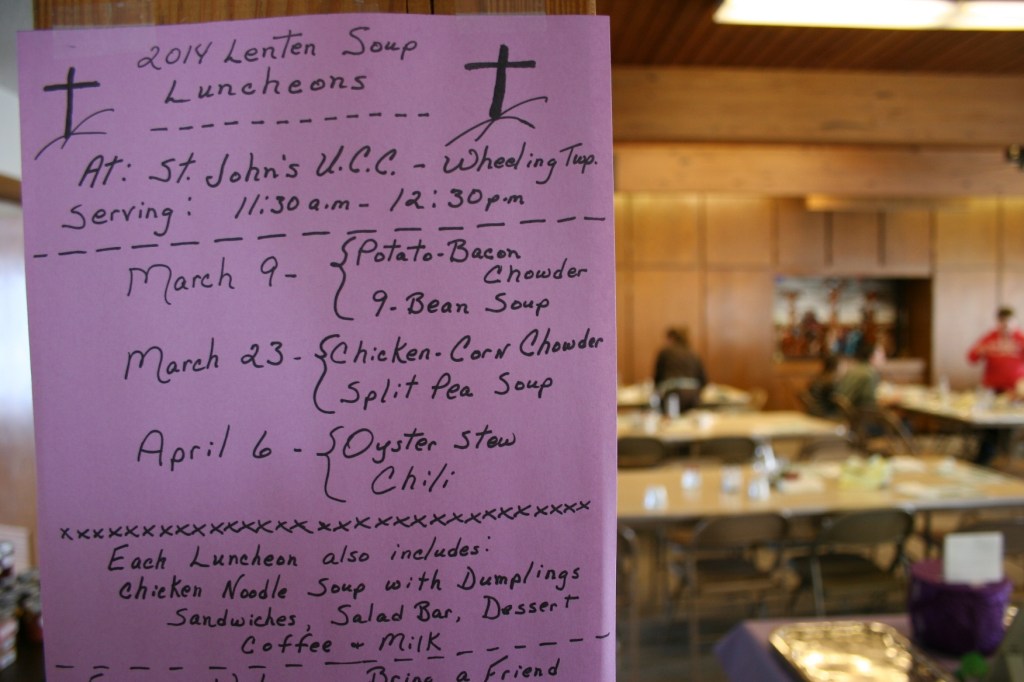 2014 Lenten Soup
Luncheons
At: St. John's U.C.C. - Wheeling Twp.
Serving: 11:30 a.m - 12:30 p.m
March 9 - { Potato-Bacon
Chowder
9-Bean Soup
March 23 - { Chicken-Corn Chowder
Split Pea Soup
April 6 - { Oyster Stew
Chili
xxxxxxxxxxxxxxxxxxxxxxxxxxxxxxxxxx
Each Luncheon also includes:
Chicken Noodle Soup with Dumplings
Sandwiches, Salad Bar, Dessert
Coffee + Milk
Bring a Friend